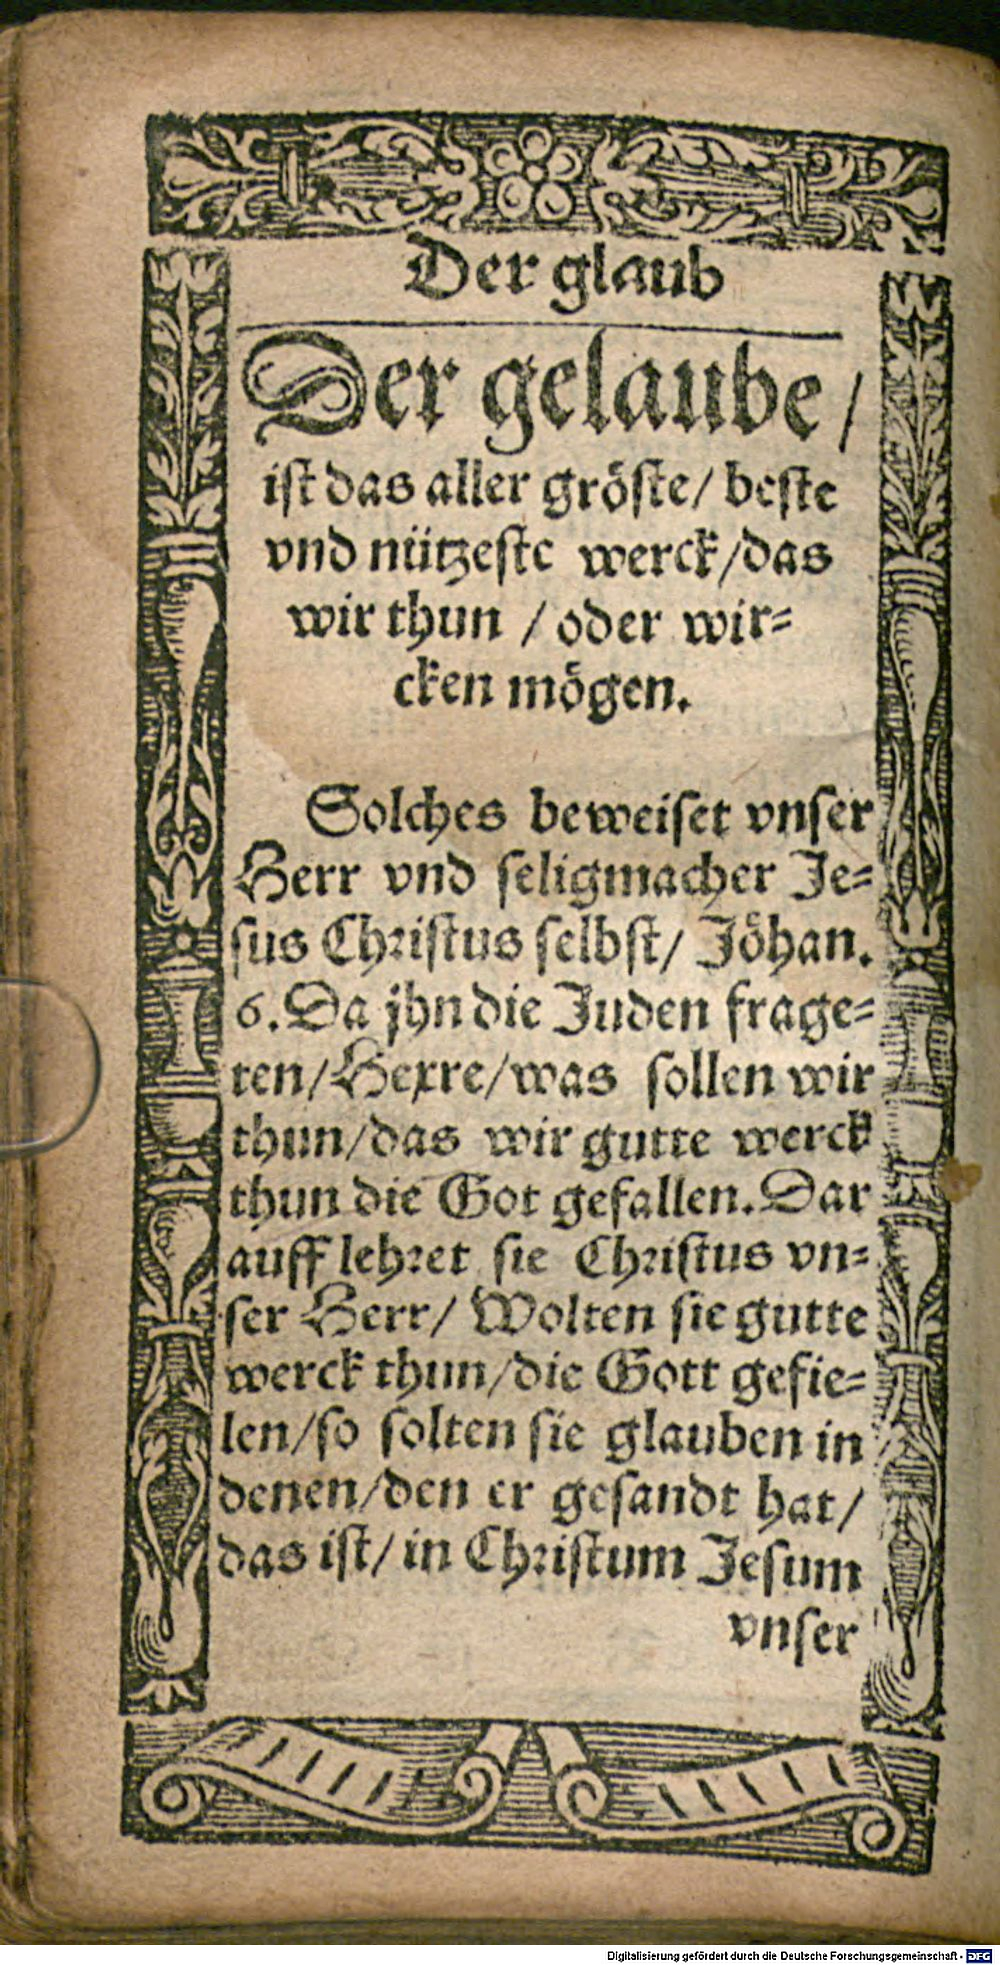 Der glaub
Der gelaube /
ist das aller gröste/ beste
vnd nützeste werck/das
wir thun / oder wir=
cken mögen.
Solches beweiset vnser
Herr vnd seligmacher Je=
sus Christus selbst/ Jöhan.
6. Da jhn die Juden frage=
ten/Herre/was sollen wir
thun/das wir gutte werck
thun die Got gefallen. Dar
auff lehret sie Christus vn=
ser Herr/ Wolten sie gutte
werck thun/die Gott gefie=
len/so solten sie glauben in
denen/den er gesandt hat/
das ist/ in Christum Jesum
vnser
Digitalisierung gefördert durch die Deutsche Forschungsgemeinschaft - DFG